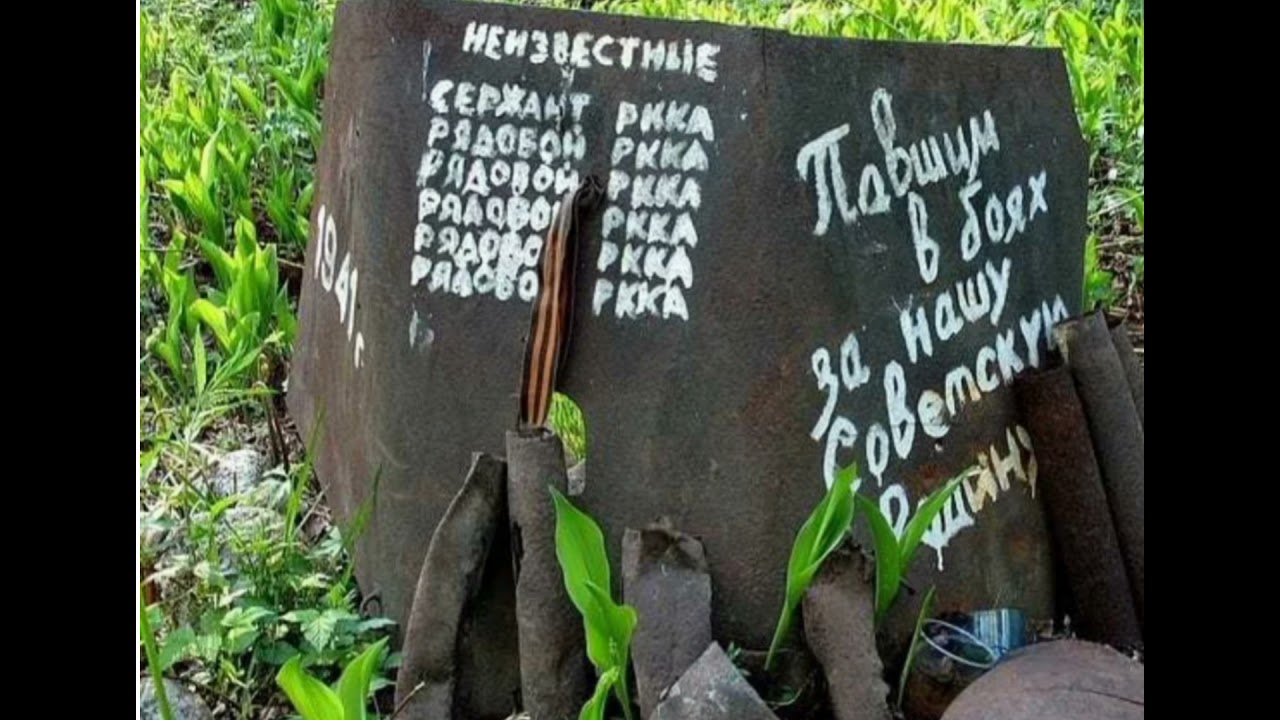 НЕИЗВЕСТНЫЕ
СЕРЖАНТ РККА
РЯДОВОЙ РККА
РЯДОВОЙ РККА
РЯДОВО РККА
РЯДОВО РККА
РЯДОВО РККА
1941 г.
Павшим
в боях
за нашу
Советскую